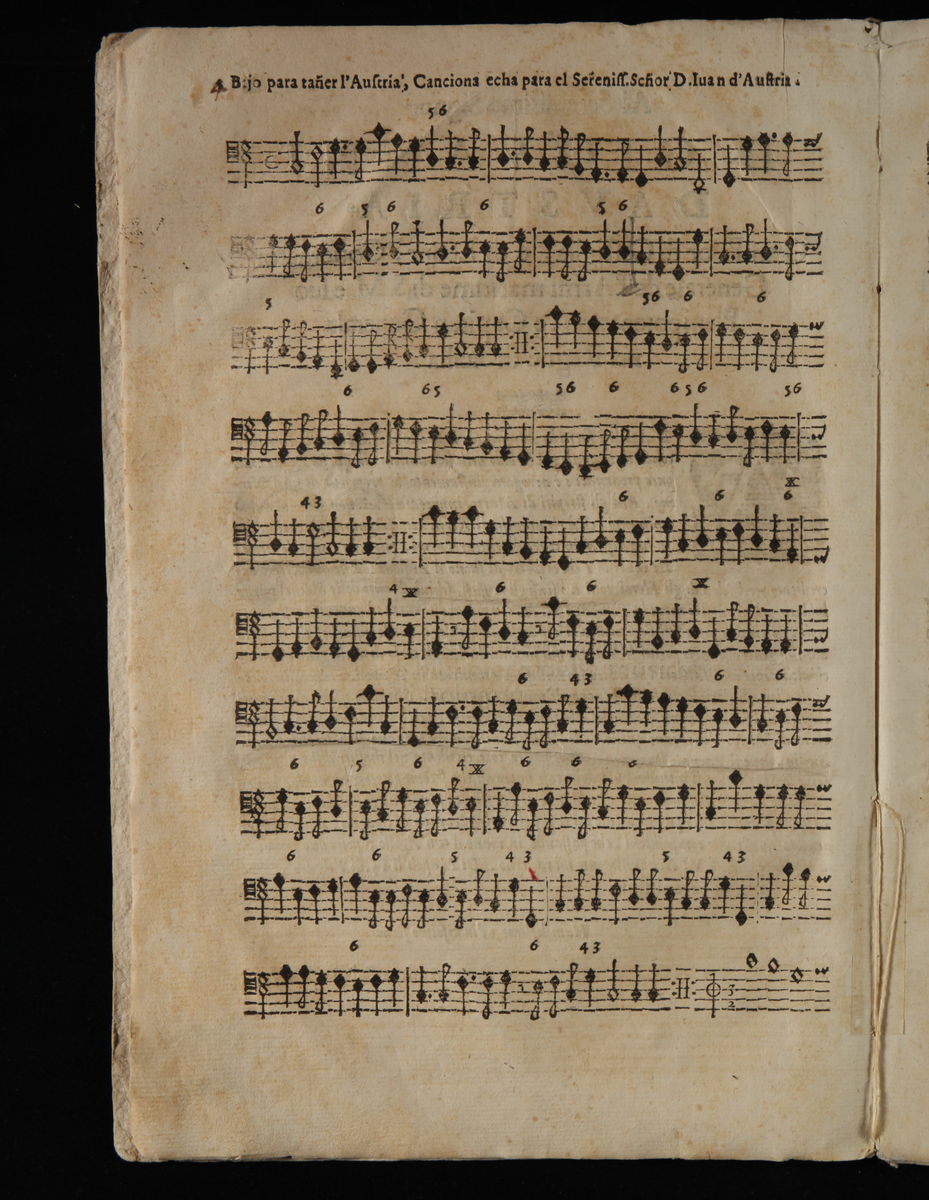 4 Bajo para tañer l'Austria, Canciona echa para el Sereniss. Señor D. Iuan d'Austria.
5 6
6 5 6 6 5 6
5 5 6 6 6
6 6 5 5 6 6 6 5 6 5 6
4 3 6 6 6
4 6 6
6 4 3 6 6
6 5 6 4 6 6 6
6 6 5 4 3 5 4 3
6 6 4 3
3
2